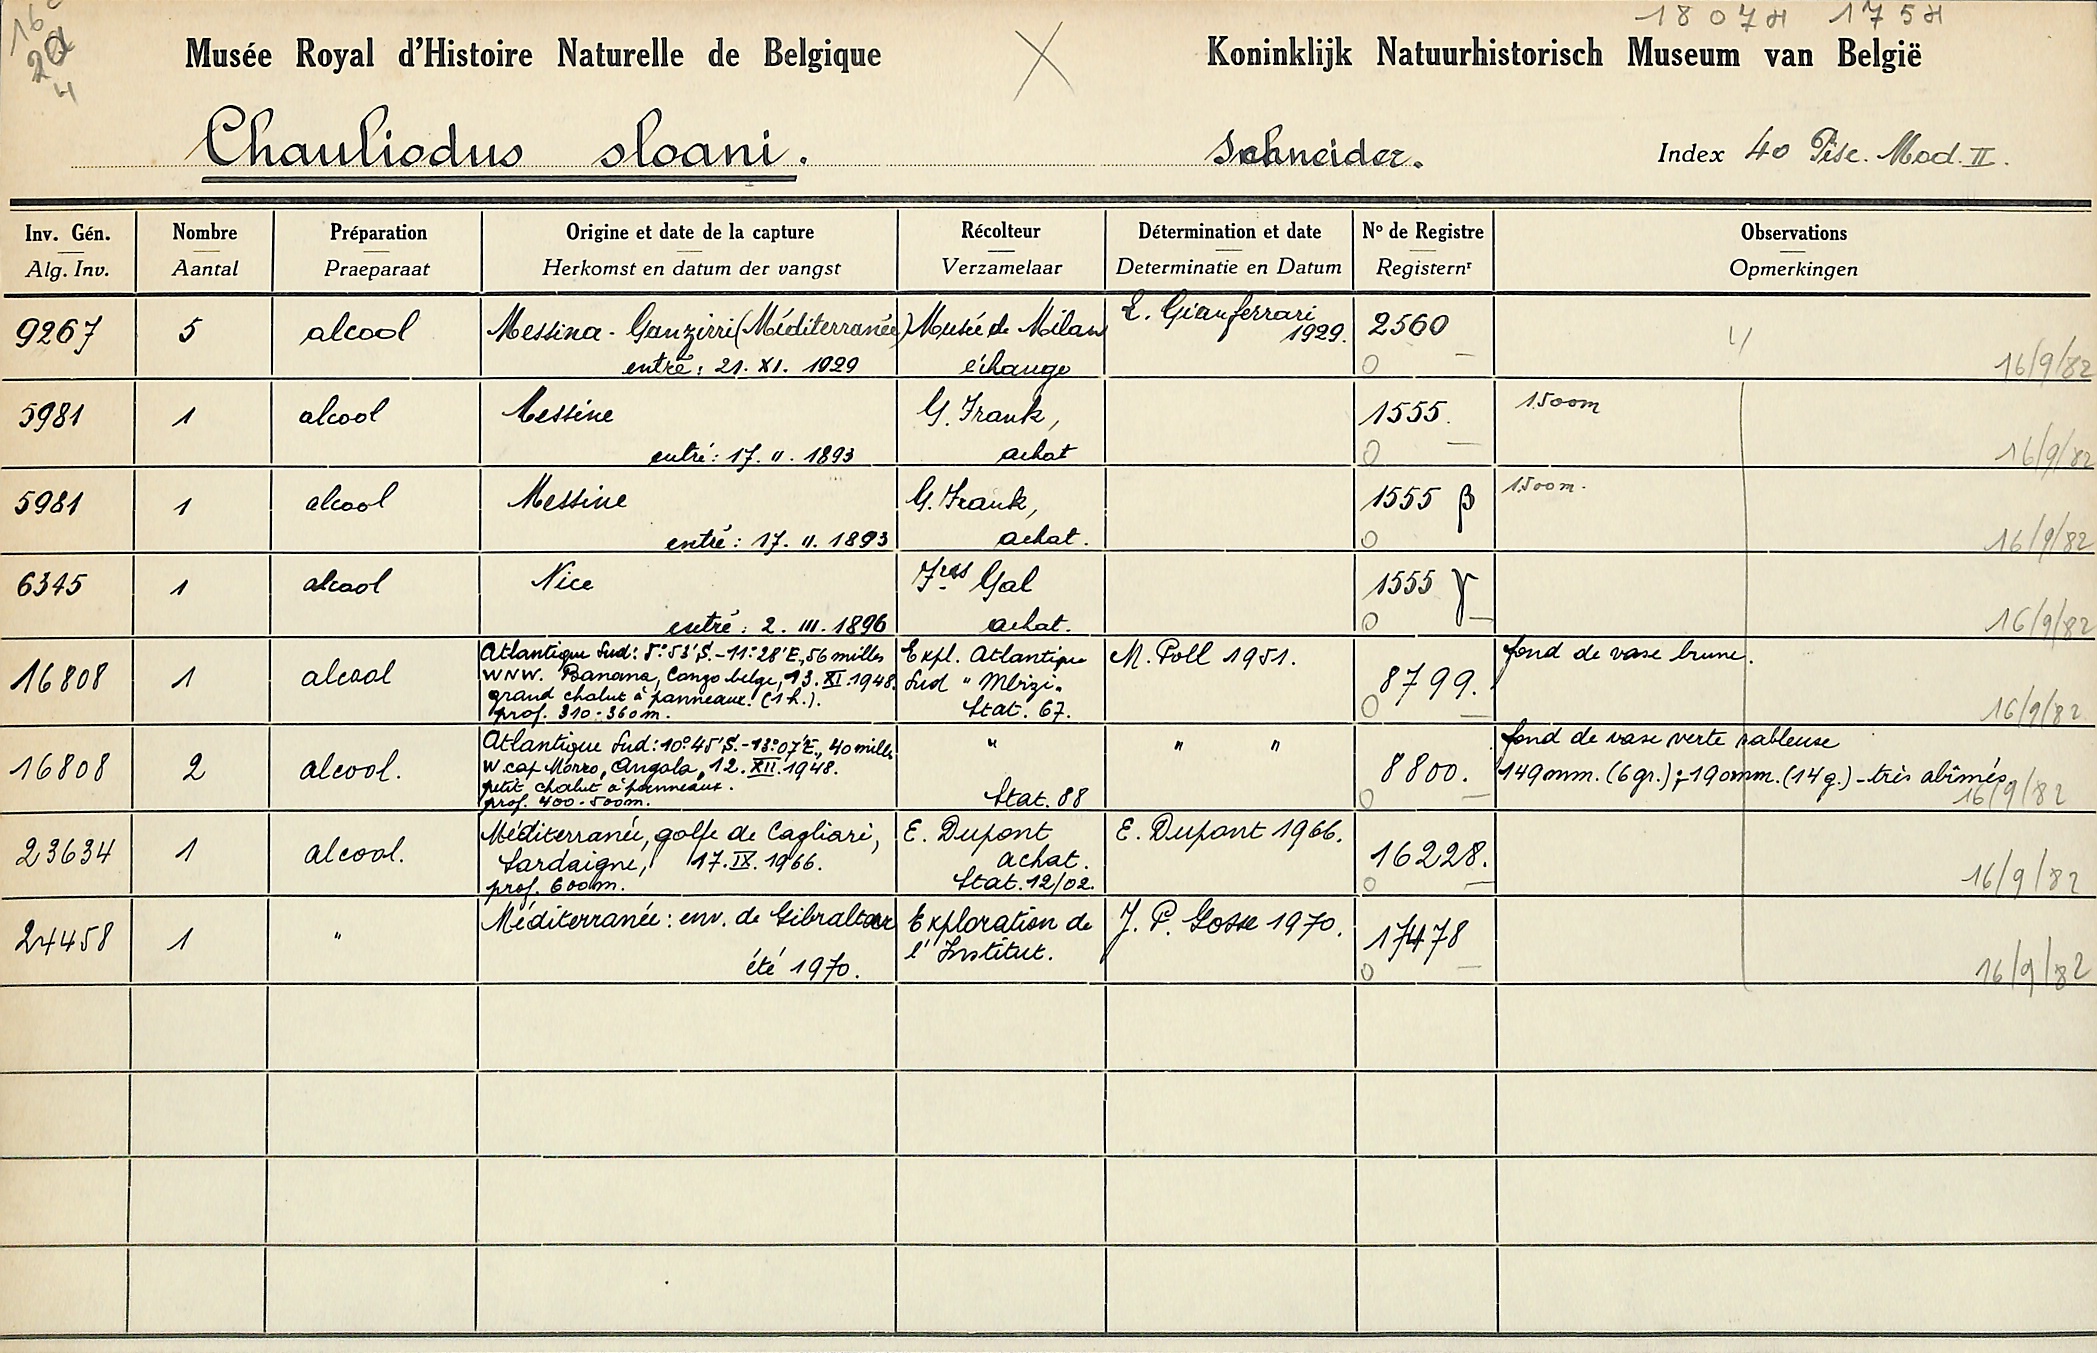 18074 1754
16
20
4
Musée Royal d'Histoire Naturelle de Belgique
Koninklijk Natuurhistorisch Museum van België
Chauliodus sloani.
Schneider.
Index 40 Pisc. Mod. II.
Inv. Gén.
Alg. Inv.
Nombre
Aantal
Préparation
Praeparaat
Origine et date de la capture
Herkomst en datum der vangst
Récolteur
Verzamelaar
Détermination et date
Determinatie en Datum
No de Registre
Registernr
Observations
Opmerkingen
9267 5 alcool Messina - Ganzirri (Méditerranée) Musée de Milan L. Gianferrari 2560
1929.
entré: 21. XI. 1929 échange 0 — 16/9/82
5981 1 alcool Messine G. Frank, 1555. 1500m
entré: 17. II. 1893 achat 0 — 16/9/82
5981 1 alcool Messine G. Frank, 1555 β 1500m.
entré: 17. II. 1893 achat. 0 16/9/82
6345 1 alcool Nice Fres Gal 1555 γ
entré: 2. III. 1896 achat. 0 — 16/9/82
16808 1 alcool
Atlantique Sud: 5°53'S.-11°28'E., 56 milles
WNW. Banana, Congo belge, 13. XI. 1948.
grand chalut à panneaux. (1 h.).
prof. 310-360m.
Expl. Atlantique
Sud "Mbizi"
Stat. 67.
M. Poll 1951.
8799.
0 —
fond de vase brune.
16/9/82
16808 2 alcool.
Atlantique Sud: 10°45'S.-13°07'E., 40 milles
W cap Morro, Angola, 12. XII. 1948.
petit chalut à panneaux.
prof. 400-500m.
"
Stat. 88
" "
8800.
0 —
fond de vase verte sableuse
149mm. (6gr.); 190mm. (14g.) - très abîmés
16/9/82
23634 1 alcool.
Méditerranée, golfe de Cagliari,
Sardaigne, 17. IX. 1966.
prof. 600m.
E. Dupont
achat.
Stat. 12/02.
E. Dupont 1966.
16228.
0 —
16/9/82
24458 1 "
Méditerranée: env. de Gibraltar
été 1970.
Exploration de
l'Institut.
J. P. Gosse 1970.
17478
0 —
16/9/82